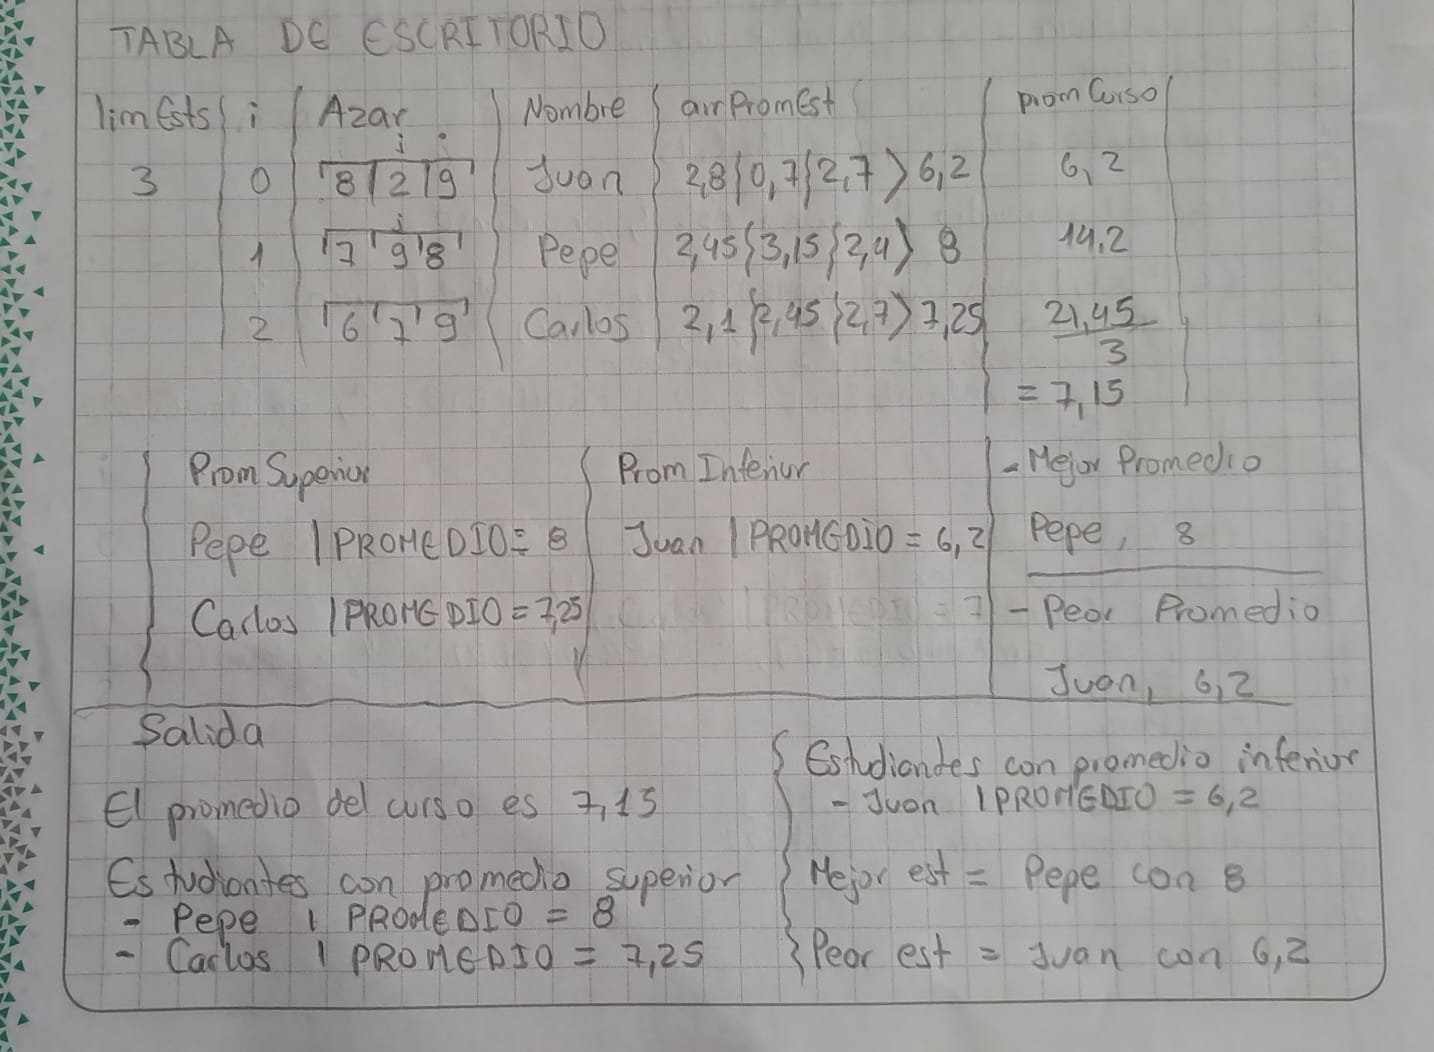 TABLA DE ESCRITORIO
limEsts i Azar Nombre arrPromEst promCurso
j
3 0 8 2 9 Juan 2,8 0,7 2,7 > 6,2 6,2
j
1 7 9 8 Pepe 2,45 3,15 2,4 > 8 14,2
2 6 7 9 Carlos 2,1 2,45 2,7 > 7,25 21,45
3
= 7,15
Prom Superior
Pepe | PROMEDIO = 8
Carlos | PROMEDIO = 7,25
Prom Inferior
Juan | PROMEDIO = 6,2
- Mejor Promedio
Pepe, 8
- Peor Promedio
Juan, 6,2
Salida
El promedio del curso es 7,15
Estudiantes con promedio superior
- Pepe | PROMEDIO = 8
- Carlos | PROMEDIO = 7,25
Estudiantes con promedio inferior
- Juan | PROMEDIO = 6,2
Mejor est = Pepe con 8
Peor est = Juan con 6,2